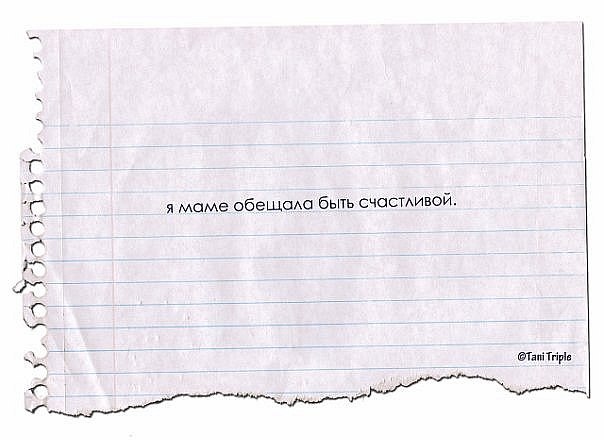 я маме обещала быть счастливой.
©Tani Triple